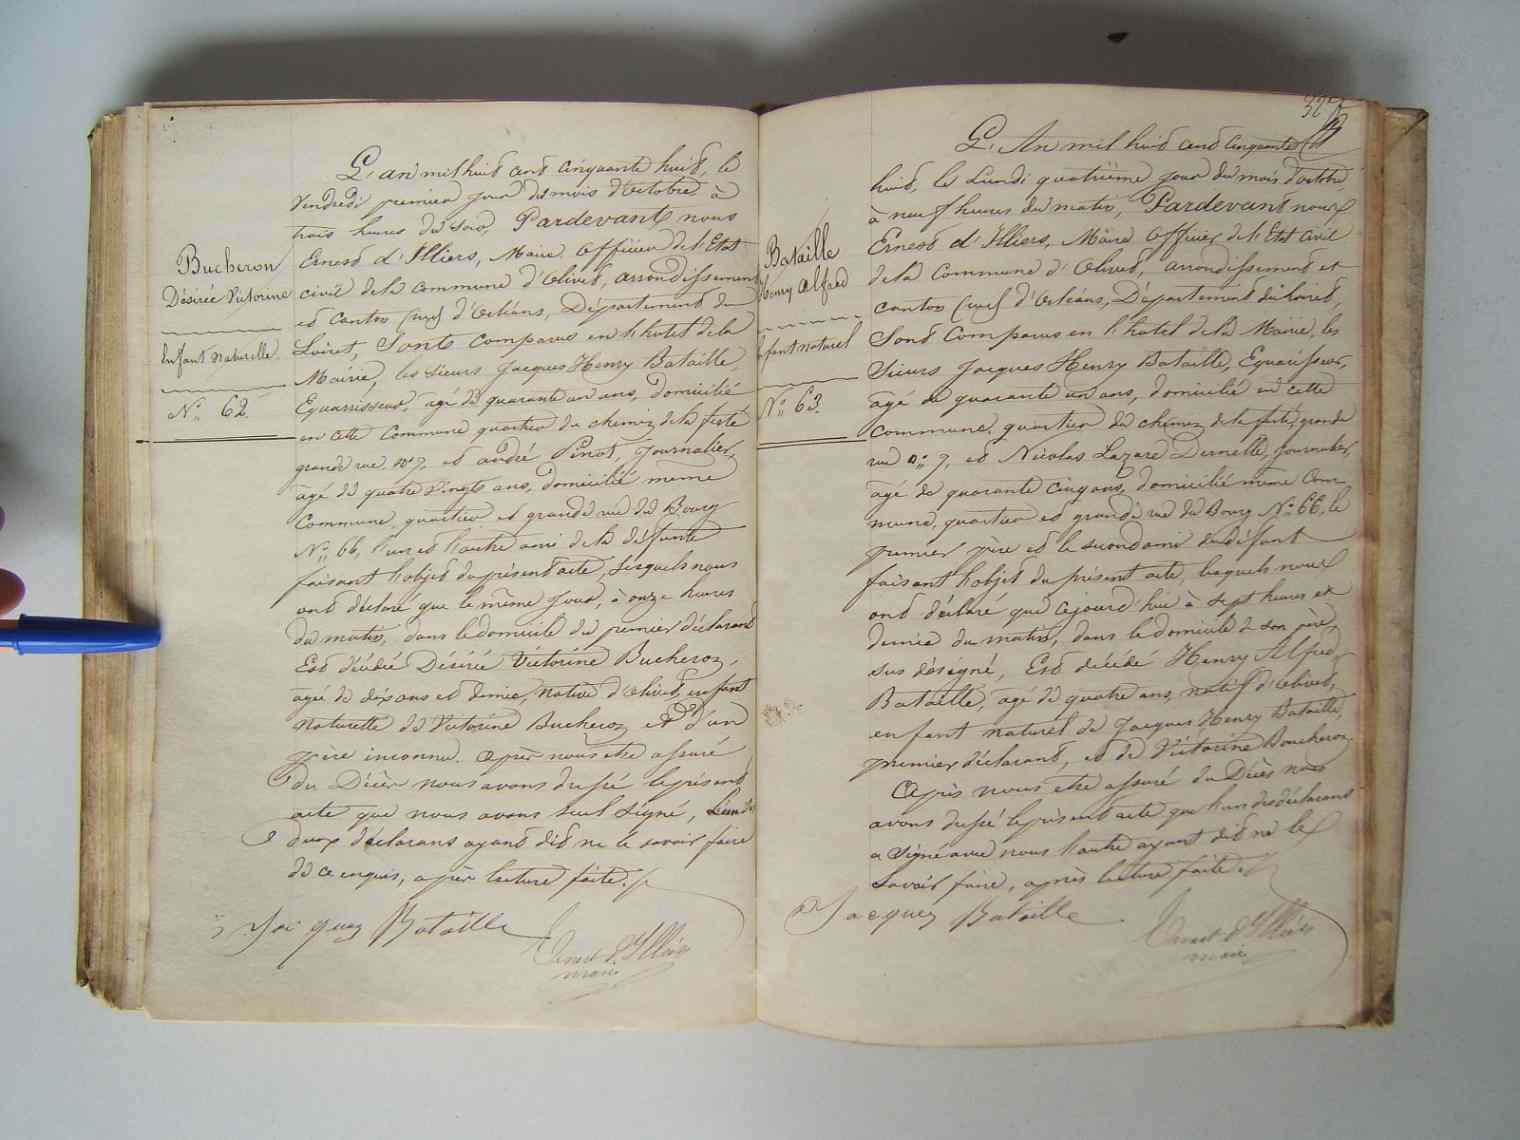 Bucheron
Désirée Victorine
Enfant Naturelle
N° 62.
L'an mil huit cent cinquante huit, le
Vendredi premier jour du mois d'Octobre à
trois heures du soir, Pardevants nous
Ernest d'Illiers, Maire officier de l'Etat
civil de la commune d'Olivet, arrondissement
et canton (sud) d'Orléans, Département du
Loiret, Sonts comparus en l'hotel de la
Mairie, les sieurs Jacques Henry Bataille,
Equarrisseur, agé de quarante un ans, domicilié
en cette commune quartier du chemin de la ferté
grande rue N° 7, et André Pinot, Journalier,
agé de quatre vingts ans, domicilié meme
Commune, quartier et grande rue du Bourg
N° 66, l'un et l'autre ami de la défunte
faisant l'objet du présent acte, lesquels nous
ont déclaré que le même jour, à onze heures
du matin, dans le domicile du premier déclarant
Est décédée Désirée Victorine Bucheron,
agée de dix ans et demie, native d'Olivet, enfant
naturelle de Victorine Bucheron et d'un
père inconnu. Après nous etre assuré
du Décès nous avons dressé le présent
acte que nous avons seul signé, les
deux déclarans ayant dit ne le savoir faire
de ce enquis, après lecture faite.
Jacques Bataille
Ernest d'Illiers
maire
Bataille
Henry Alfred
Enfant naturel
N° 63.
L'An mil huit cent cinquante
huit, le Lundi quatrième jour du mois d'octobre
à neuf heures du matin, Pardevant nous
Ernest d'Illiers, Maire officier de l'Etat civil
de la commune d'Olivet, arrondissement et
canton (sud) d'Orléans, Département du Loiret,
Sont Comparus en l'hotel de la Mairie, les
Sieurs Jacques Henry Bataille, Equarisseur,
agé de quarante un ans, domicilié en cette
commune, quartier du chemin de la ferté, grande
rue n° 7, et Nicolas Lazare Dernelle, journalier,
agé de quarante cinq ans, domicilié même Com-
mune, quartier et grande rue du Bourg N° 66, le
premier père et le second ami du défunt
faisant l'objet du présent acte, lesquels nous
ont déclaré que cejourd'hui à sept heures et
demie du matin, dans le domicile de son père,
sus désigné, Est décédé Henry Alfred
Bataille, agé de quatre ans, natif d'Olivet,
enfant naturel de Jacques Henry Bataille,
premier déclarant, et de Victorine Boucheron.
Après nous etre assuré du Décès nous
avons dressé le présent acte que l'un des déclarans
a signé avec nous l'autre ayant dit ne le
savoir faire, après lecture faite.
Jacques Bataille
Ernest d'Illiers
maire